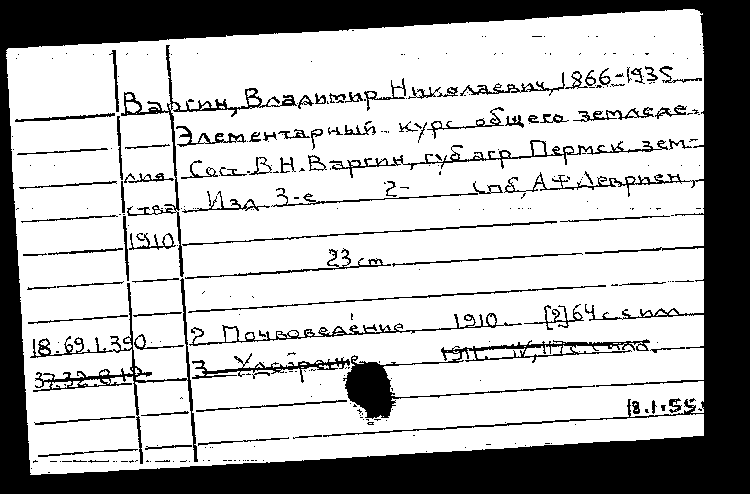 Варгин, Владимир Николаевич, 1866-1935
Элементарный курс общего земледе-
лия Сост. В.Н.Варгин, губ агр Пермск зем-
ства Изд 3-е 2- Спб, А.Ф.Девриен,
1910
23 cm.
18.69.1.390 2 Почвоведение. 1910. [2] 64 с с илл
37.32.8.12 3 Удобрение 1911. IV, 117 с. с илл.
18.1.55.